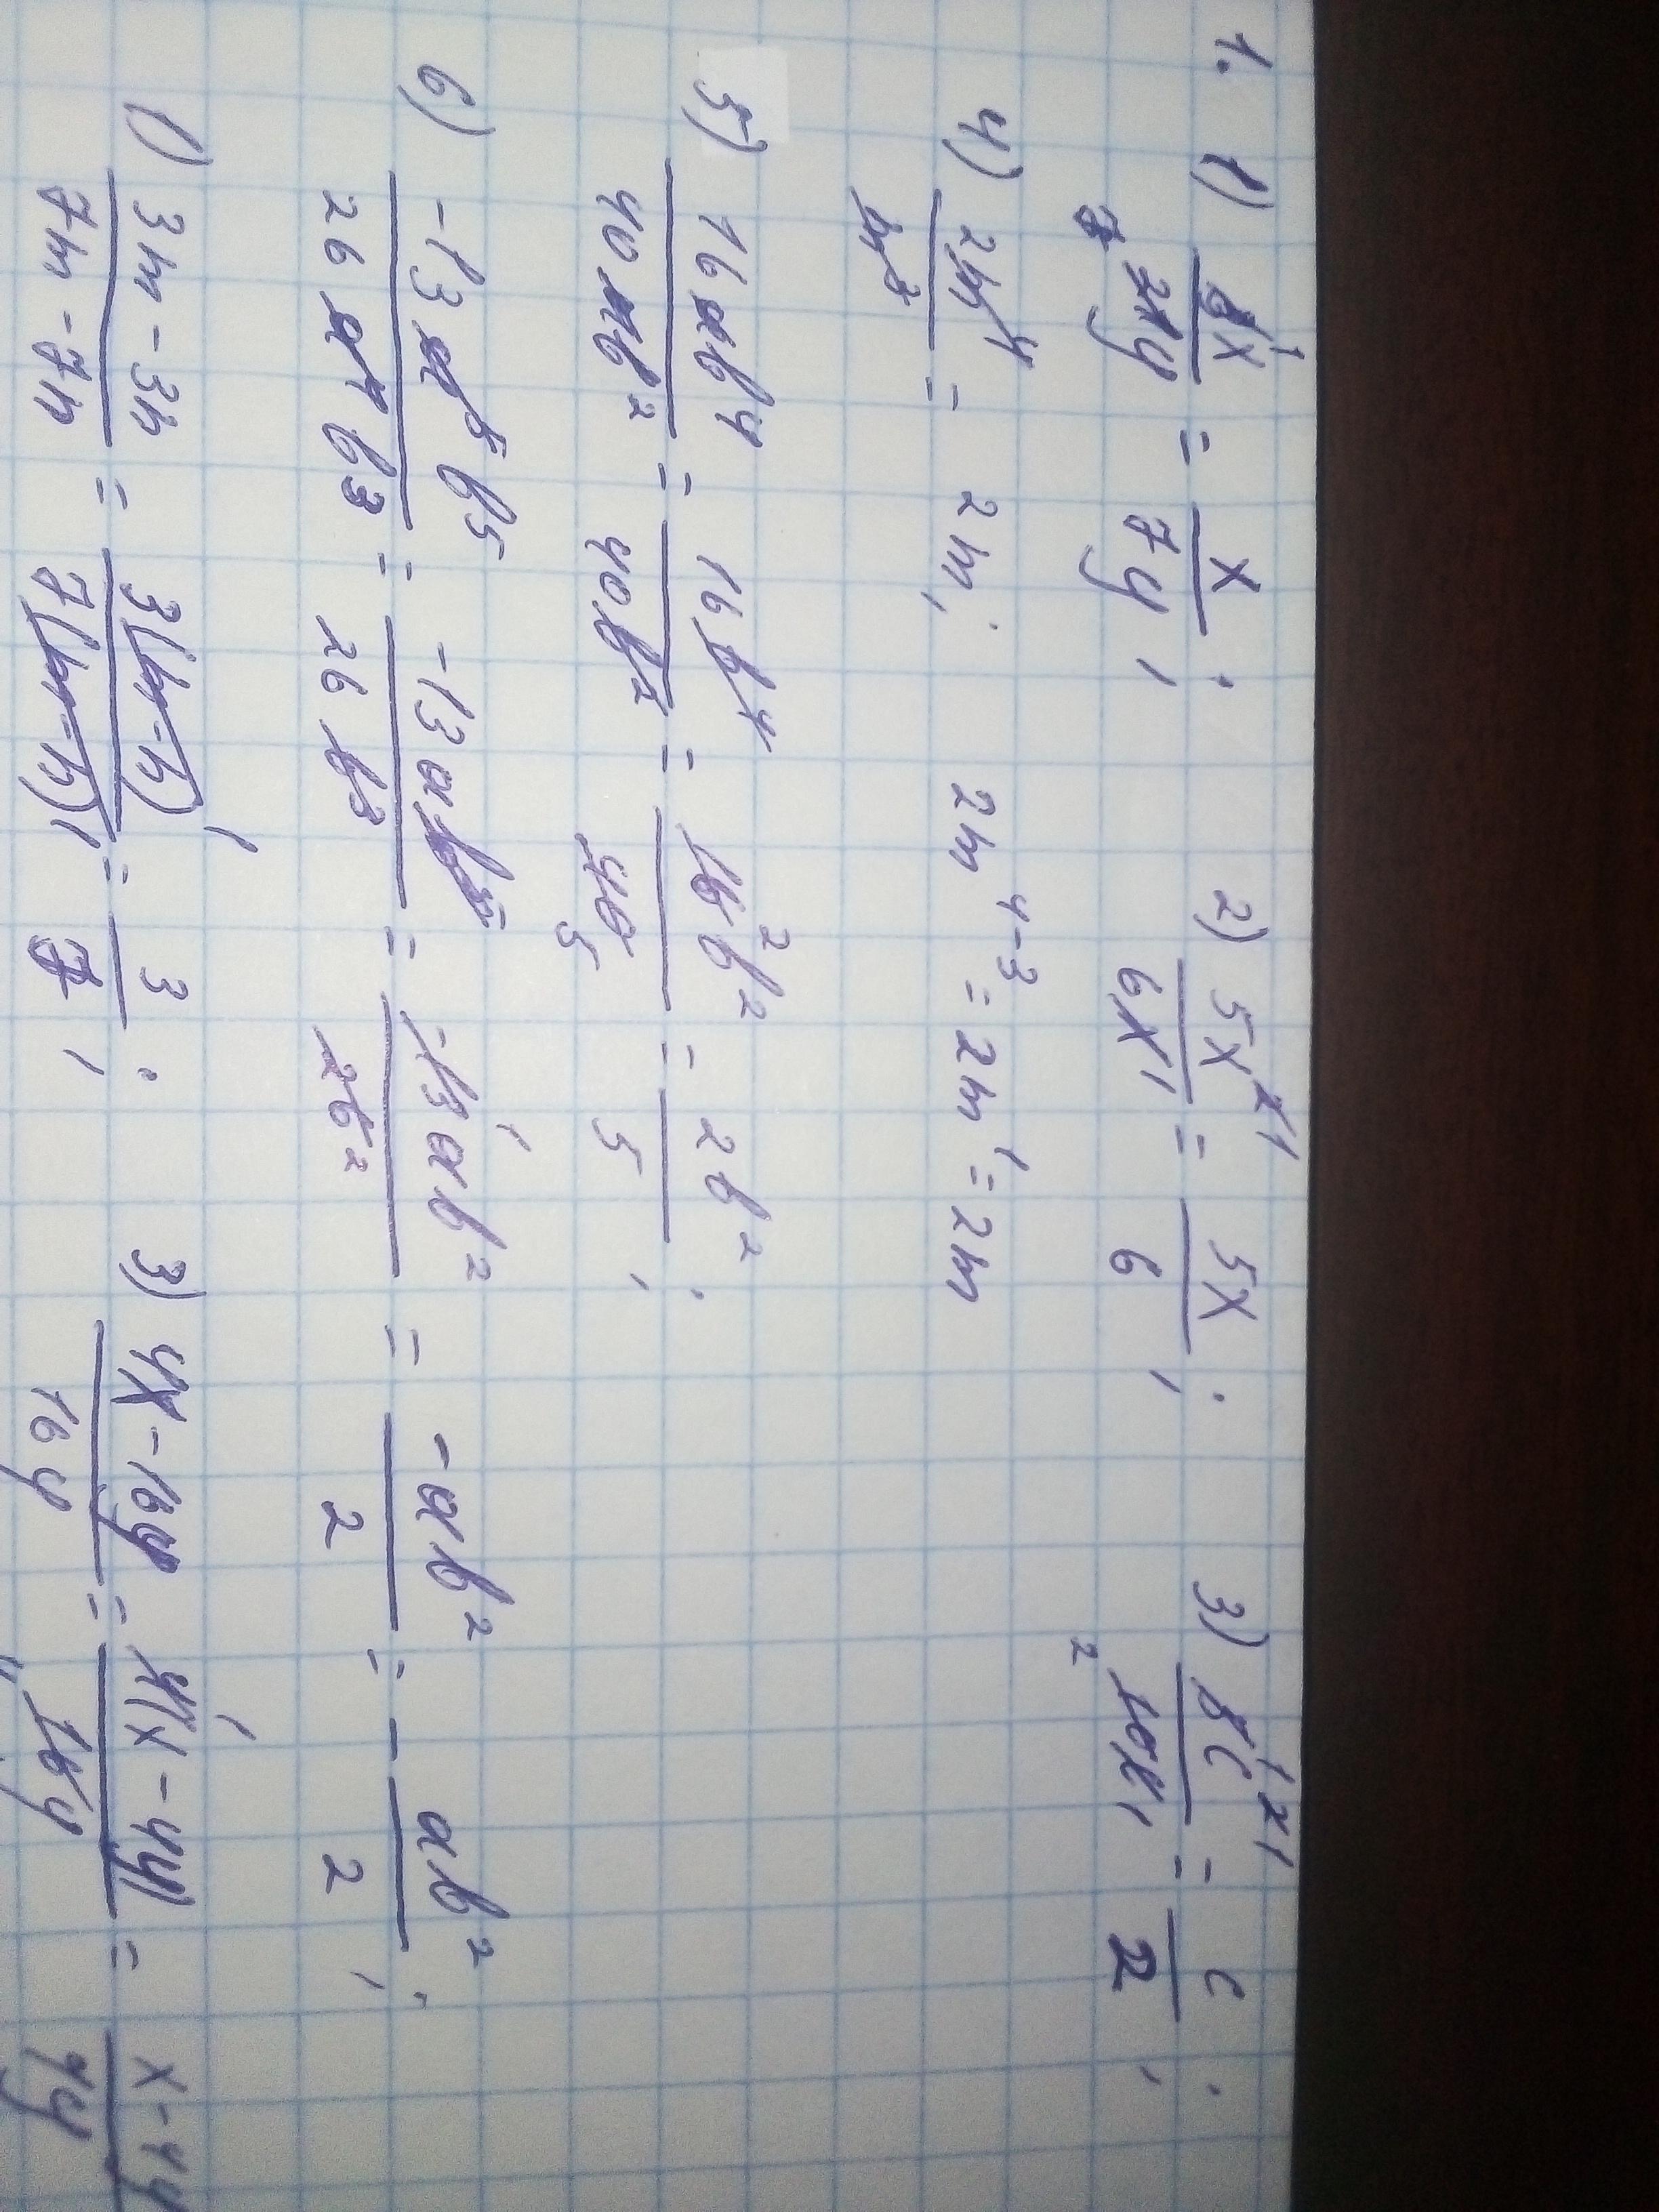 1. 1) 3x/21y = x/7y; 2) 5x²/6x = 5x/6; 3) 5c²/10c = c/2;
4) 2m⁴/m³ = 2m; 2m⁴⁻³ = 2m¹ = 2m
5) 16ab⁴/40ab² = 16b⁴/40b² = 16b²/40 = 2b²/5;
6) -13a⁵b⁵/26a⁴b³ = -13ab⁵/26b³ = -13ab²/26 = -ab²/2 = - ab²/2;
1) 3m-3n/7m-7n = 3(m-n)/7(m-n) = 3/7; 3) 4x-16y/16y = 4(x-4y)/16y = x-4y/4y